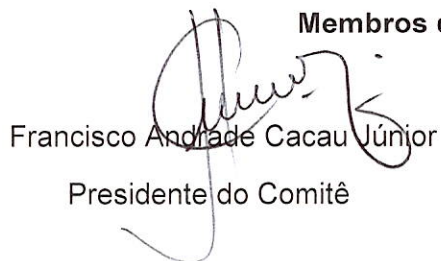 Membros d
Francisco Andrade Cacau Júnior
Presidente do Comitê